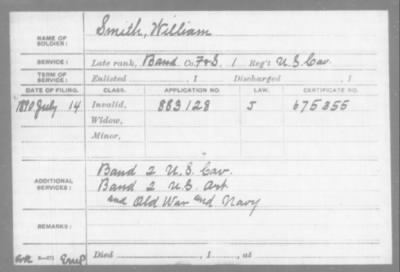 NAME OF SOLDIER: Smith, William
SERVICE: Late rank, Band Co. F&S. 1 Reg't U.S. Cav.
TERM OF SERVICE: Enlisted , 1 Discharged , 1
DATE OF FILING. CLASS. APPLICATION NO. LAW. CERTIFICATE NO.
1890 July 14 Invalid, 883128 J 675355
Widow,
Minor,
ADDITIONAL SERVICES: Band 2 U.S. Cav.
Band 2 U.S. Art
and Old War and Navy
REMARKS:
Died , 1 , at